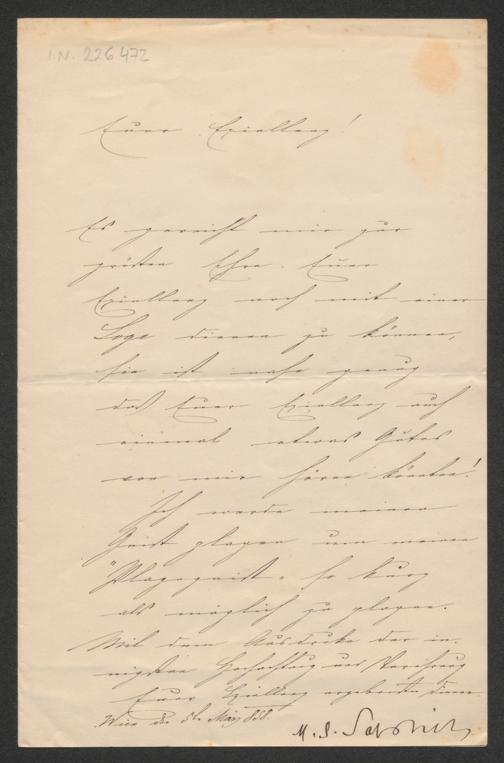 I.N. 226472
Euer Excellenz!
Es gereicht mir zur
größten Ehre Euer
Excellenz noch mit einer
Loge dienen zu können,
sie ist nahe genug
daß Euer Excellenz auch
einmal etwas Gutes
von mir hören könnten!
Ich werde meinen
Geist plagen um meinen
"Plagegeist" so kurz
als möglich zu plagen.
Mit dem Ausdrucke der in-
nigsten Hochachtung und Verehrung
Euer Excellenz ergebenster Diener
Wien den 5t. März 858.
M. G. Saphir